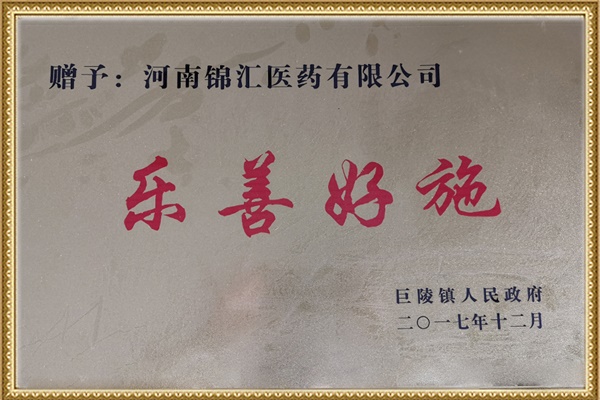 赠予：河南锦汇医药有限公司
乐善好施
巨陵镇人民政府
二〇一七年十二月